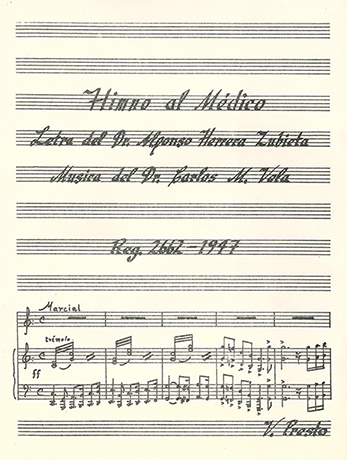 Himno al Médico
Letra del Dr. Alfonso Herrera Zubieta
Musica del Dr. Carlos M. Vola
Reg. 2662-1947
Marcial
trémolo
ff
V. Presto